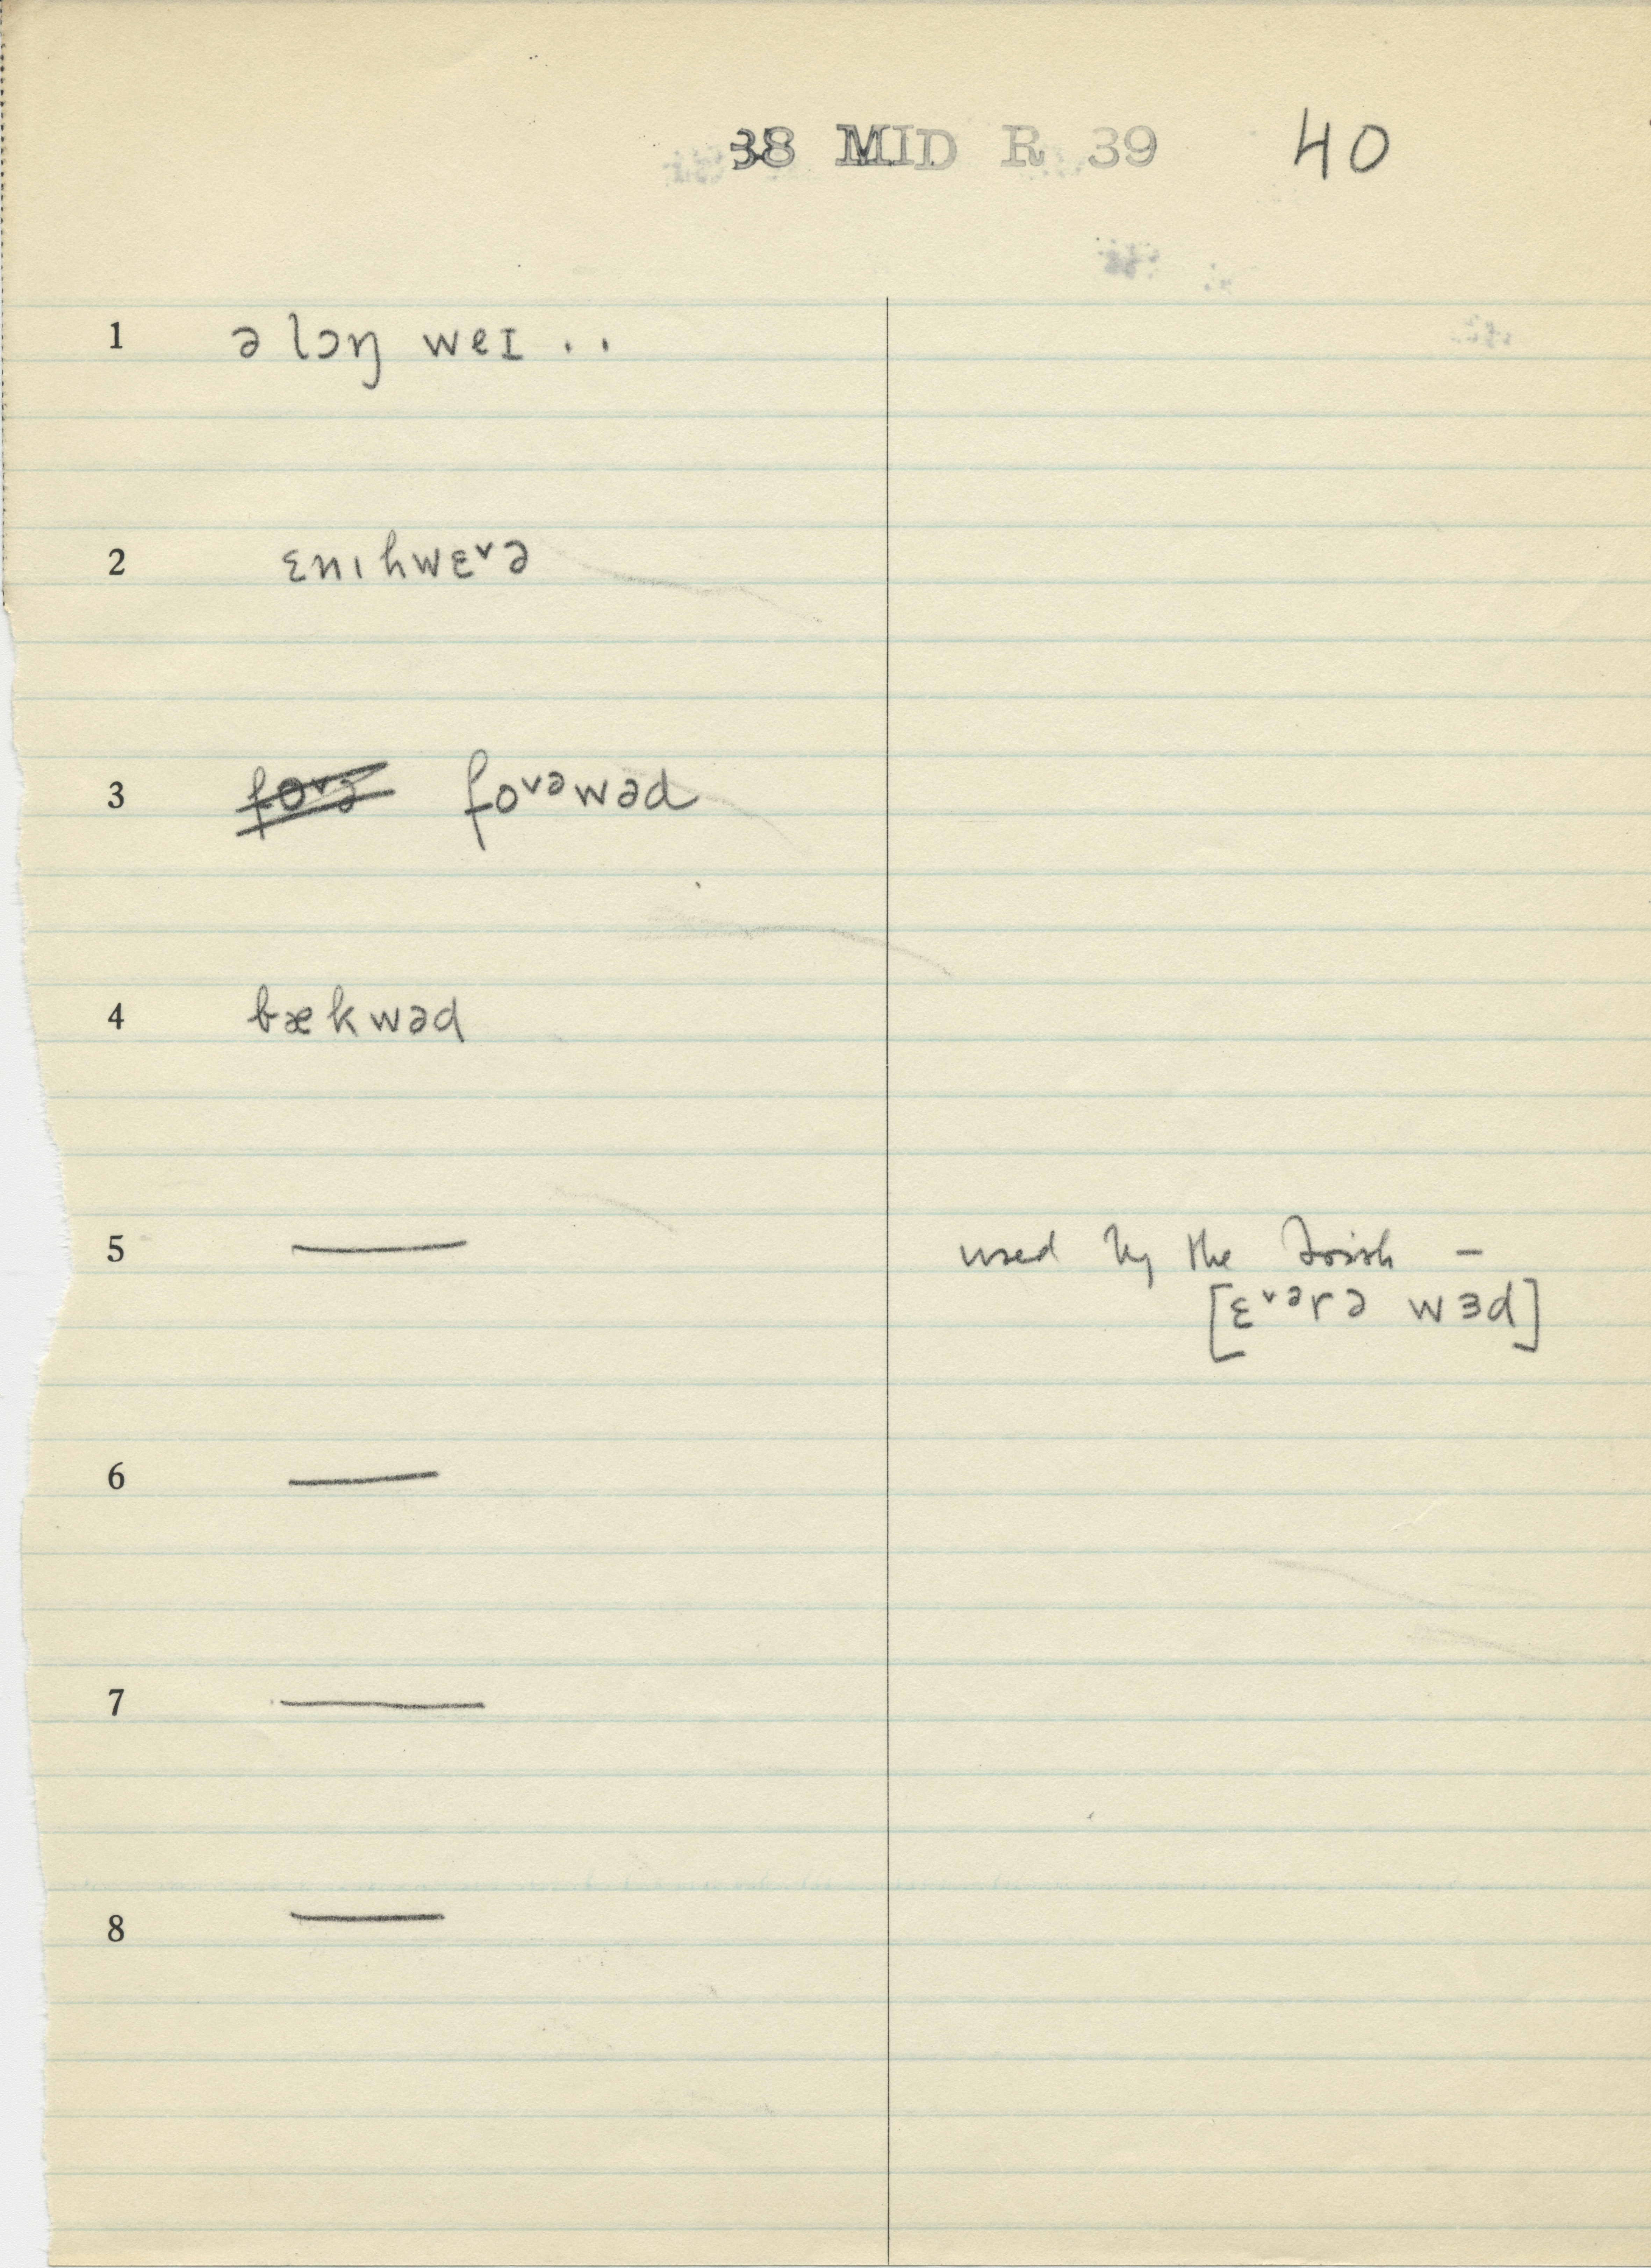 38 MID R 39 40
1 ə lɔŋ weɪ . .
2 ɛnɩhwɛ˅ə
3 fo˅ə fo˅ᵊwəd
4 bækwəd
5 — used by the Irish –
[ɛ˅ᵊrə wɜd]
6 —
7 —
8 —